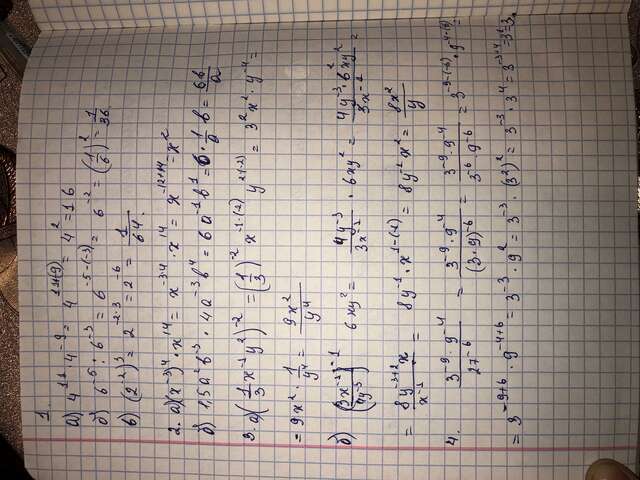 1.
а) 4¹¹ · 4⁻⁹ = 4¹¹⁺⁽⁻⁹⁾ = 4² = 16
б) 6⁻⁵ : 6⁻³ = 6⁻⁵⁻⁽⁻³⁾ = 6⁻² = (1/6)² = 1/36
в) (2⁻²)³ = 2⁻²·³ = 2⁻⁶ = 1/64.
2. а) (x⁻³)⁴ · x¹⁴ = x⁻³·⁴ · x¹⁴ = x⁻¹²⁺¹⁴ = x²
б) 1,5a²b⁻³ · 4a⁻³b⁴ = 6a⁻¹b¹ = 6 · 1/a · b = 6b/a
3. а) (1/3 x⁻¹y²)⁻² = (1/3)⁻² x⁻¹·⁽⁻²⁾ y²·⁽⁻²⁾ = 3²x² · y⁻⁴ =
= 9x² · 1/y⁴ = 9x²/y⁴
б) (3x⁻²/4y⁻³)⁻¹ · 6xy² = 4y⁻³/3x⁻² · 6xy² = 4y⁻³ · 6² xy²/3x⁻² =
= 8y⁻³⁺² x/x⁻² = 8y⁻¹ · x¹⁻⁽⁻²⁾ = 8y⁻¹x² = 8x²/y
4. 3⁻⁹ · 9⁻⁴/27⁻⁶ = 3⁻⁹ · 9⁻⁴/(3 · 9)⁻⁶ = 3⁻⁹ · 9⁻⁴/3⁻⁶ · 9⁻⁶ = 3⁻⁹⁻⁽⁻⁶⁾ · 9⁻⁴⁻⁽⁻⁶⁾ =
= 3⁻⁹⁺⁶ · 9⁻⁴⁺⁶ = 3⁻³ · 9² = 3⁻³ · (3²)² = 3⁻³ · 3⁴ = 3⁻³⁺⁴ = 3¹ = 3